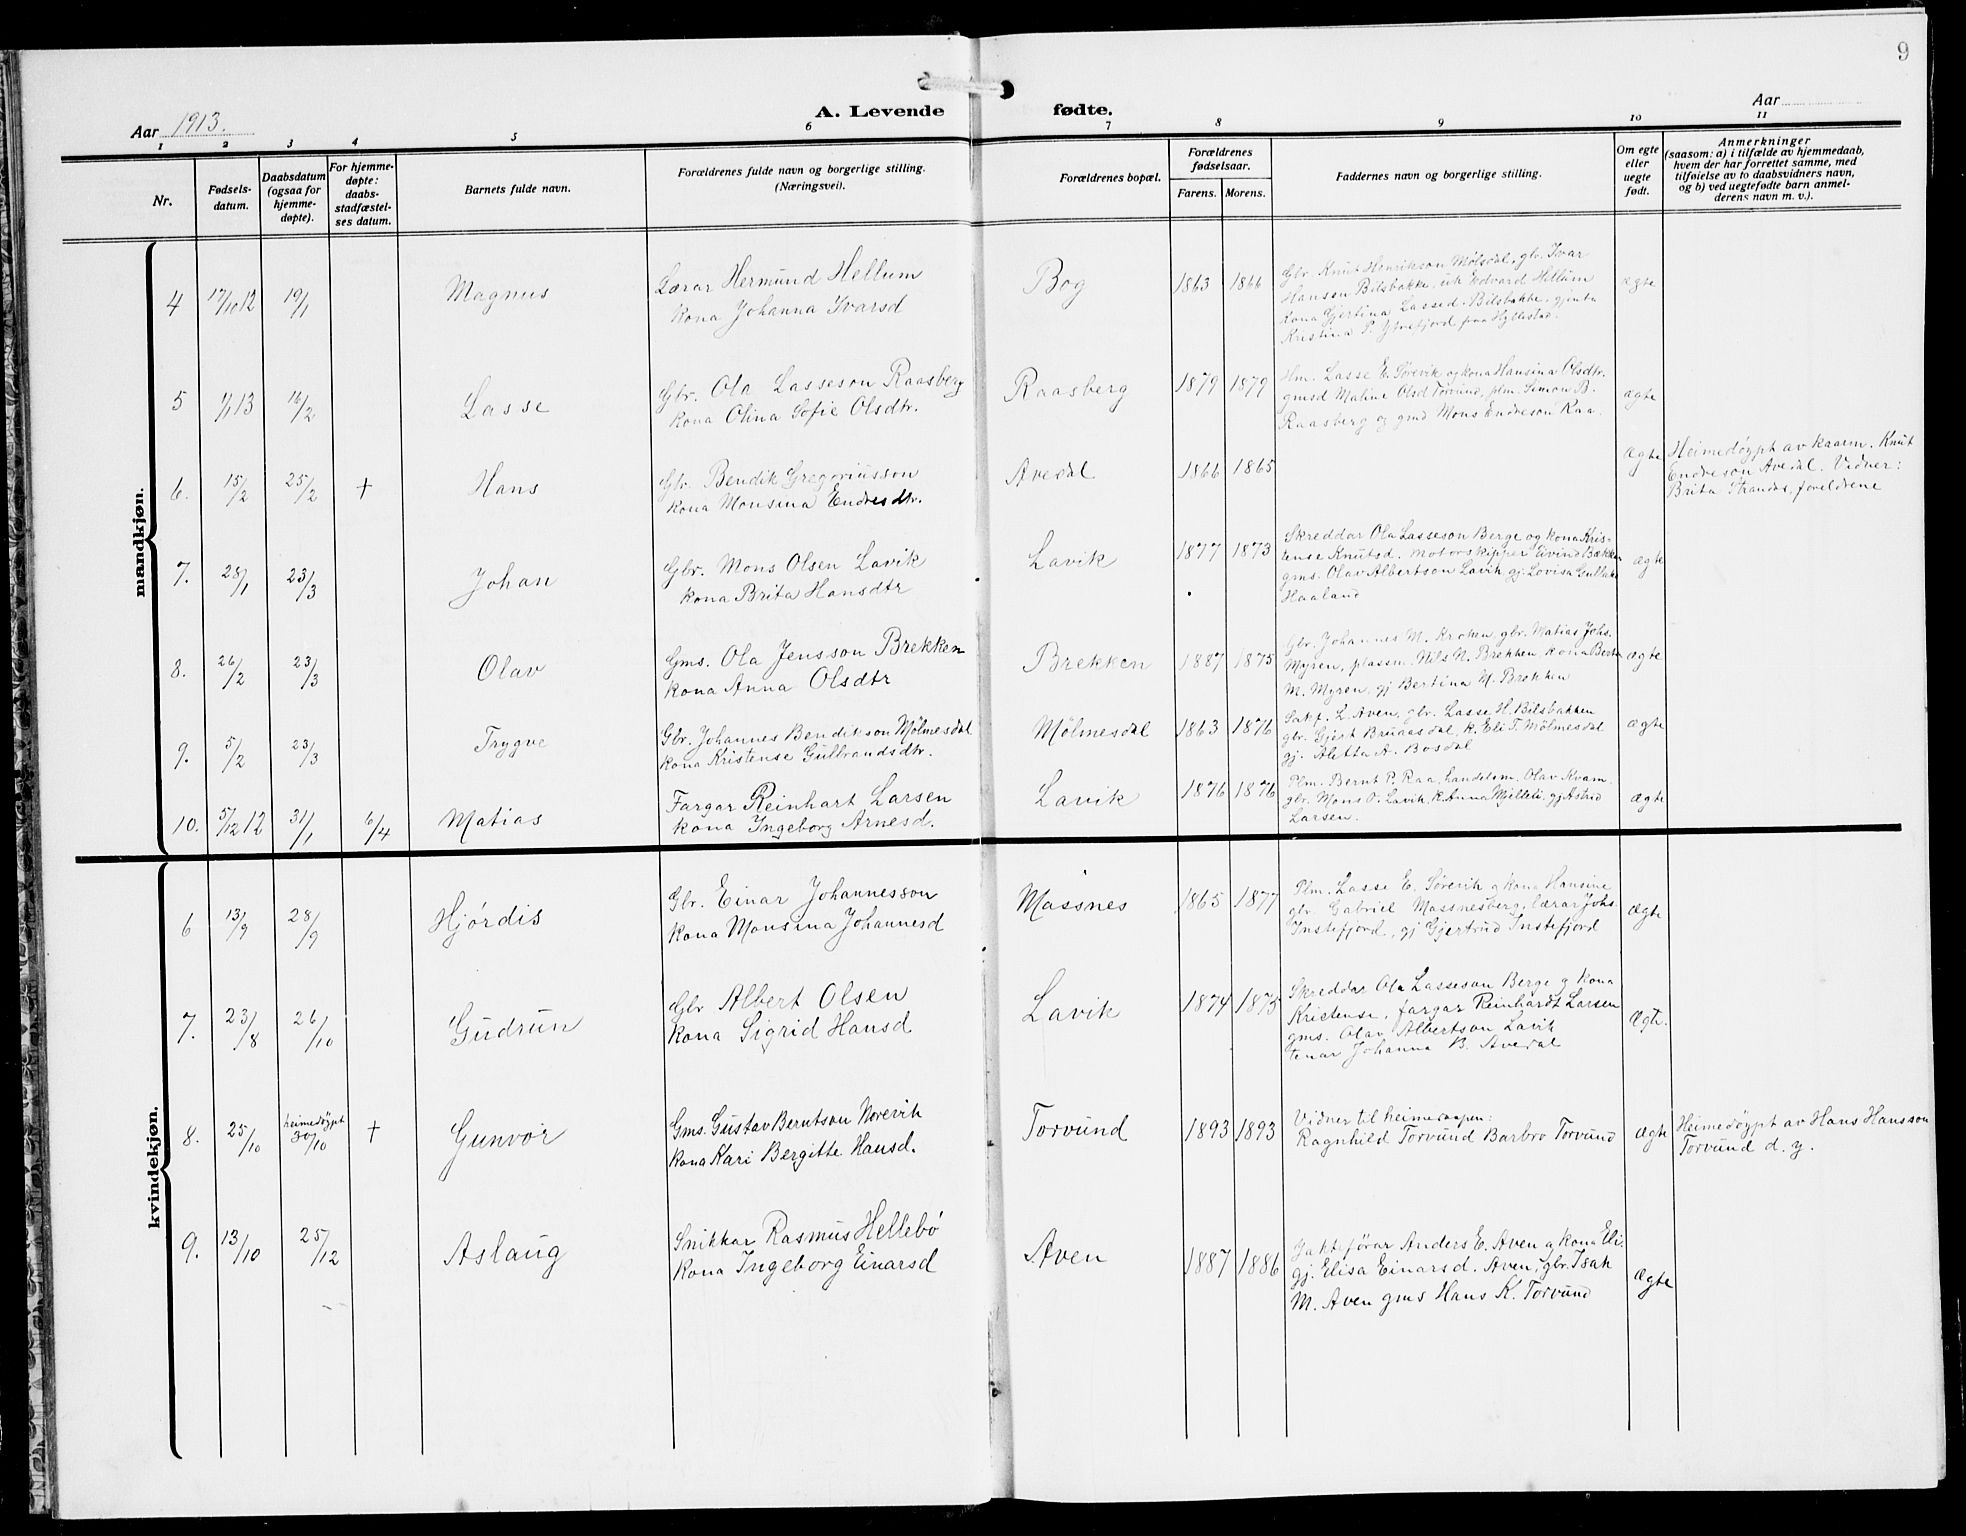 9
A. Levende fødte.
Aar 1913.
Aar
1 2 3 4 5 6 7 8 9 10 11
Nr.
Fødsels-
datum.
Daabsdatum
(ogsaa for
hjemme-
døpte).
For hjemme-
døpte:
daabs-
stadfæstel-
ses datum.
Barnets fulde navn.
Forældrenes fulde navn og borgerlige stilling.
(Næringsvei).
Forældrenes bopæl.
Forældrenes
fødselsaar.
Farens. Morens.
Faddernes navn og borgerlige stilling.
Om egte
eller
uegte
født.
Anmerkninger
(saasom: a) i tilfælde av hjemmedaab,
hvem der har forrettet samme, med
tilføielse av to daabsvidners navn,
og b) ved uegtefødte barn anmel-
derens navn m. v.).
mandkjøn.
4 17/10 12 19/1 Magnus
Lærar Hermund Hellum
kona Johanna Ivarsd
Bog 1863 1866
Gbr Knut Henrikson Mølsdal, gbr. Ivar
Hansen Bilsbakke, uk Edvard Hellum
kona Gjertina Lassed. Bilsbakke, gjenta
Kristina P. Ytrefjord fraa Hyllestad.
ægte
5 1/1 13 16/2 Lasse
Gbr. Ola Lasseson Raasberg
kona Olina Sofie Olsdtr.
Raasberg 1879 1879
Hm. Lasse E. Sørevik og kona Hansina Olsdtr.
gmsd Maline Olsd Torvund, plm. Simon B.
Raasberg og gmd Mons Endreson Raa.
ægte
6. 15/2 25/2 † Hans
Gbr. Bendik Gregoriusson
kona Monsina Endresdtr.
Avedal 1866 1865
ægte
Heimedøypt av kaarm. Knut
Endreson Avedal. Vidner:
Brita Strandos, foreldrene
7. 28/1 23/3 Johan
Gbr. Mons Olsen Lavik
kona Brita Hansdtr
Lavik 1877 1873
Skreddar Ola Lasseson Berge og kona Kris-
tense Knutsd. motorskipper Eivind Bækken
gms. Olav Albertson Lavik, gj. Lovisa Gullaks
Haaland
ægte
8. 26/2 23/3 Olav
Gms. Ola Jensson Brekken
kona Anna Olsdtr
Brekken 1887 1875
Gbr. Johannes M. Kroken, gbr. Matias Johs.
Myren, plassm. Nils N. Brekken, kona Berta
M. Myren, gj Bertina N. Brekken
ægte
9. 5/2 23/3 Trygve
Gbr. Johannes Bendikson Mølmesdal
kona Kristense Gulbrandsdtr.
Mølmesdal 1863 1876
Sakf. L. Aven, gbr. Lasse H. Bilsbakken
gbr. Gjert Bruaasdal, k. Eli T. Mølmesdal
gj. Aletta A. Bosdal
ægte
10. 5/12 12 31/1 6/4 Matias
Fargar Reinhart Larsen
kona Ingeborg Arnesd.
Lavik 1876 1876
Plm. Bernt P. Raa, handelsm. Olav Kvam
gbr. Mons O. Lavik, k. Anna Mjelleli, gj Astrid
Larsen.
ægte
kvindekjøn.
6 13/9 28/9 Hjørdis
Gbr. Einar Johannesson
kona Monsina Johannesd
Massnes 1865 1877
Plm. Lasse E. Sørevik og kona Hansine
gbr. Gabriel Massnesberg, lærar Johs.
Instefjord, gj Gjertrud Instefjord
ægte
7. 23/8 26/10 Gudrun
Gbr Albert Olsen
kona Sigrid Hansd
Lavik 1874 1875
Skreddar Ola Lasseson Berge og kona
Kristense, fargar Reinhardt Larsen
gms. Olav Albertson Lavik
tenar Johanna B. Avedal
Ægte.
8. 25/10 heimedøypt
30/10 † Gunvor
Gms. Gustav Berntson Norevik
kona Kari Bergitte Hansd.
Torvund 1893 1893
Vidner til heimedaapen:
Ragnhild Torvund Barbro Torvund
ægte
Heimedøypt av Hans Hansson
Torvund d. y.
9. 13/10 25/12 Aslaug
Snikkar Rasmus Hellebø
kona Ingeborg Einarsd
Aven 1887 1886
Jakteførar Anders E. Aven og kona Eli.
gj. Elisa Einarsd. Aven, gbr. Isak
M. Aven gms Hans K. Torvund
ægte